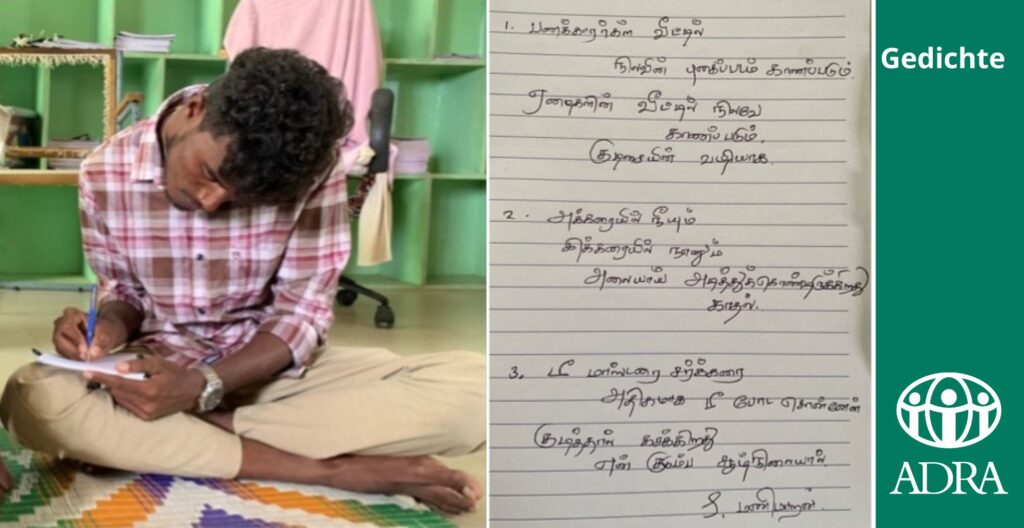 1. பணக்காரர்கள் வீட்டில்
நிலவின் புகைப்படம் காணப்படும்.
ஏழைகளின் வீட்டில் நிலவே
காணப்படும்.
குடிசையின் வழியாக
2. அக்கரையில் நீயும்
இக்கரையில் நானும்
அலையாய் அடித்துக்கொண்டிருக்கிறது
காதல்.
3. டீ மாஸ்டரை சர்க்கரை
அதிகமாக டீ போட சொன்னேன்
குடித்தால் கசக்கிறது
என் குடும்ப சூழ்நிலையால்.
மணிமாறன்.
Gedichte
ADRA